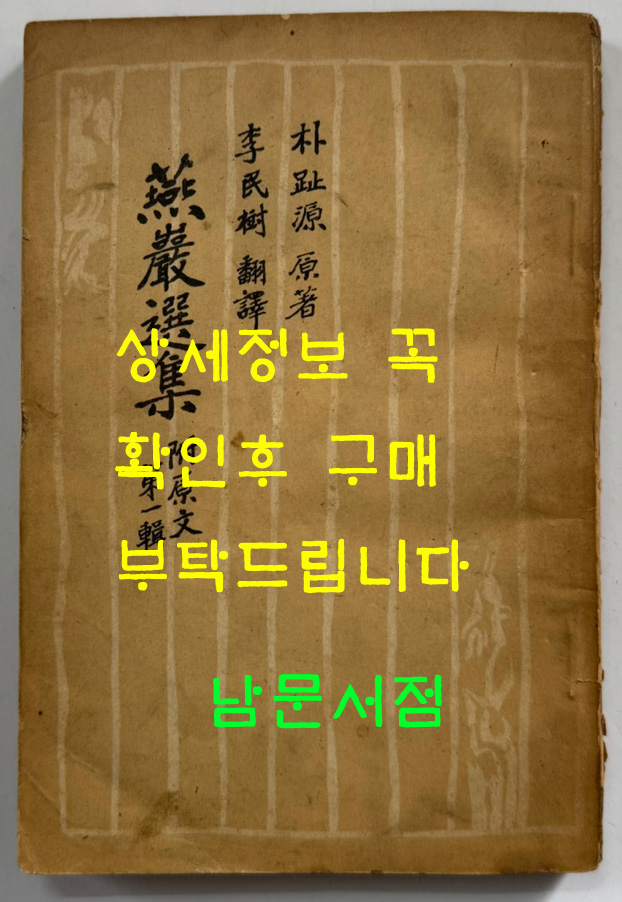 朴趾源 原著
李民樹 翻譯
燕巖選集
附原文
第一輯
상세정보 꼭
확인후 구매
부탁드립니다
남문서점